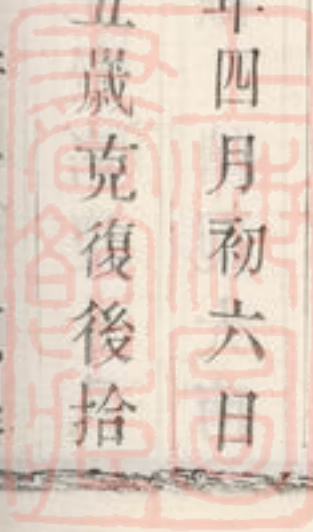 年四月初六日
五歲克復後拾